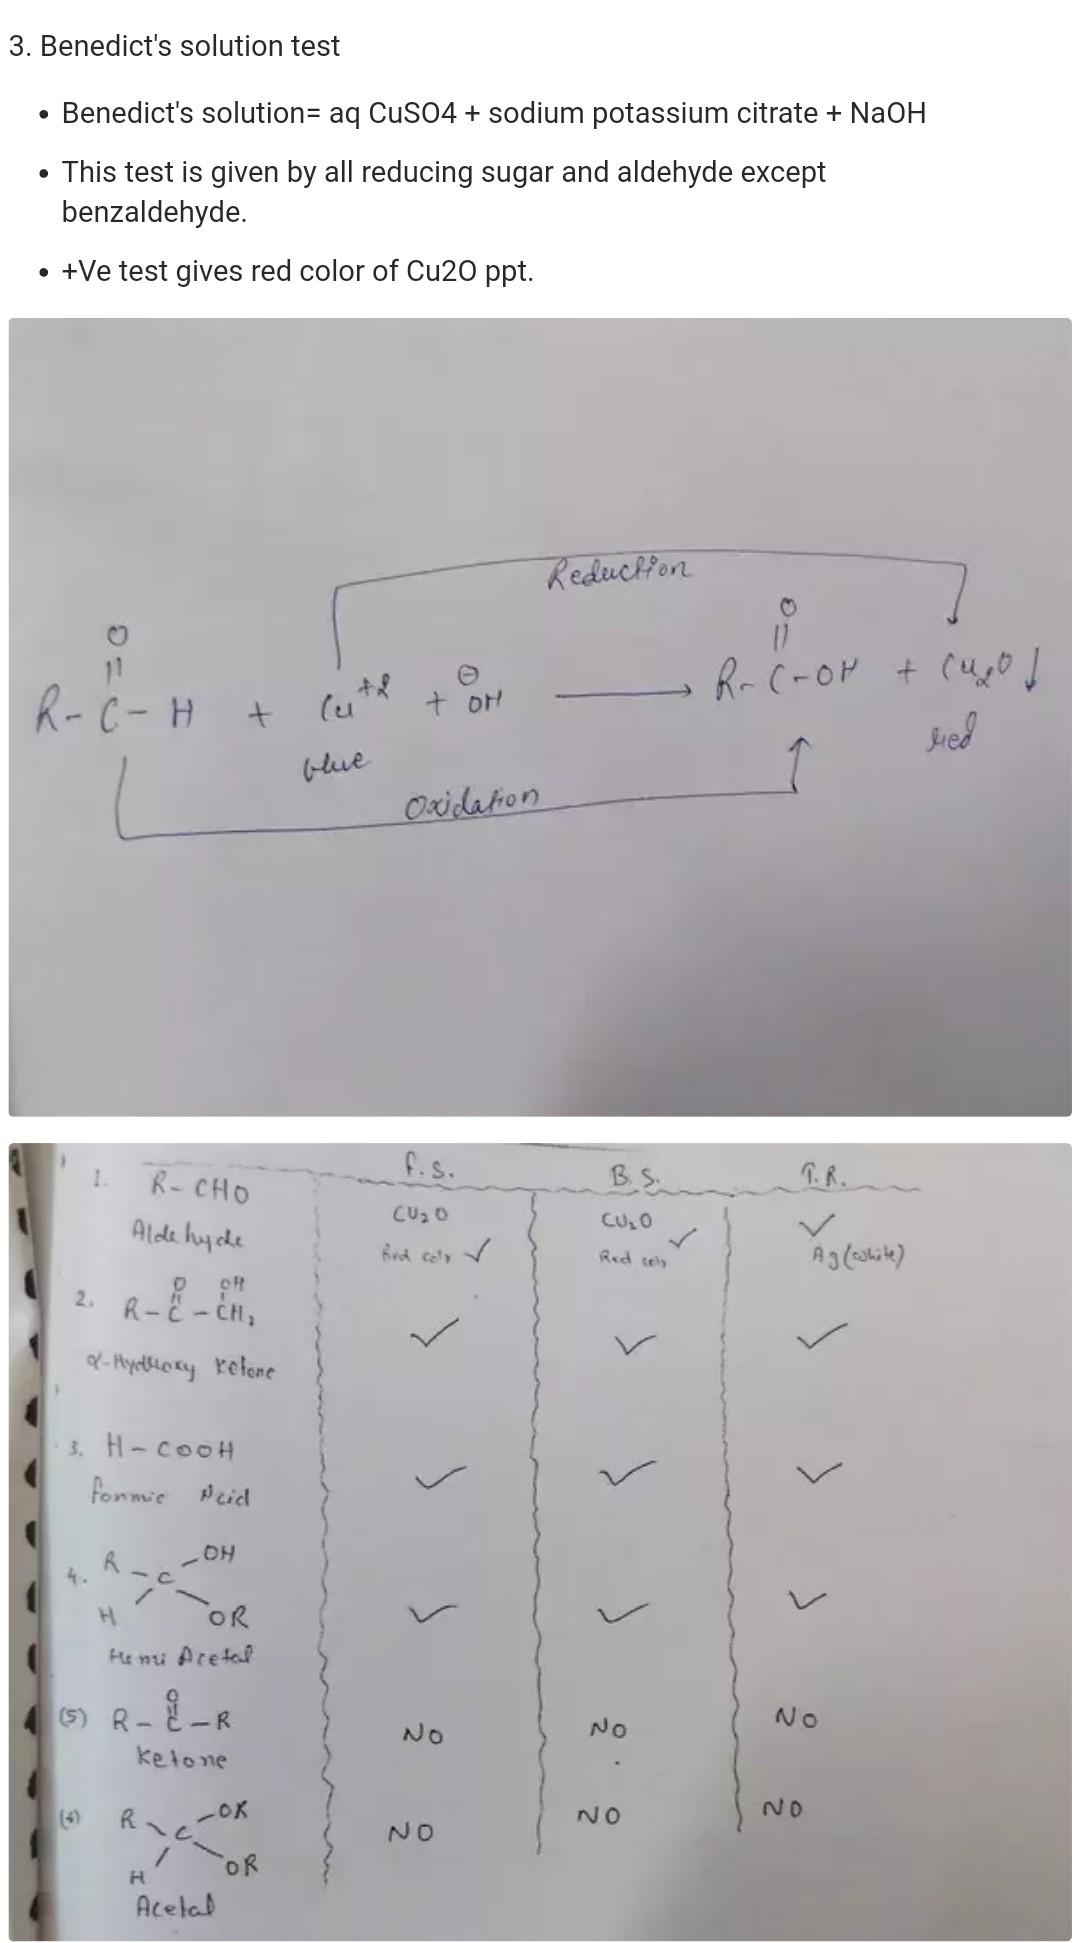 3. Benedict's solution test
• Benedict's solution= aq CuSO4 + sodium potassium citrate + NaOH
• This test is given by all reducing sugar and aldehyde except
benzaldehyde.
• +Ve test gives red color of Cu2O ppt.
Reduction
O
||
R-C-H + Cu+2 + ⊖OH ⟶ R-C-OH + Cu2O↓
O
||
blue
red
Oxidation
F.S. B.S. T.R.
1. R-CHO
Aldehyde
Cu2O
Red colr ✓
Cu2O
Red colr ✓
✓
Ag(white)
2. R-C-CH2
O OH
||
✓ ✓ ✓
α-Hydroxy Ketone
3. H-COOH
✓ ✓ ✓
Formic Acid
4. R-C-OH
H OR
✓ ✓ ✓
Hemi Acetal
(5) R-C-R
O
||
NO NO NO
Ketone
(6) R C -OR
H OR
NO NO NO
Acetal